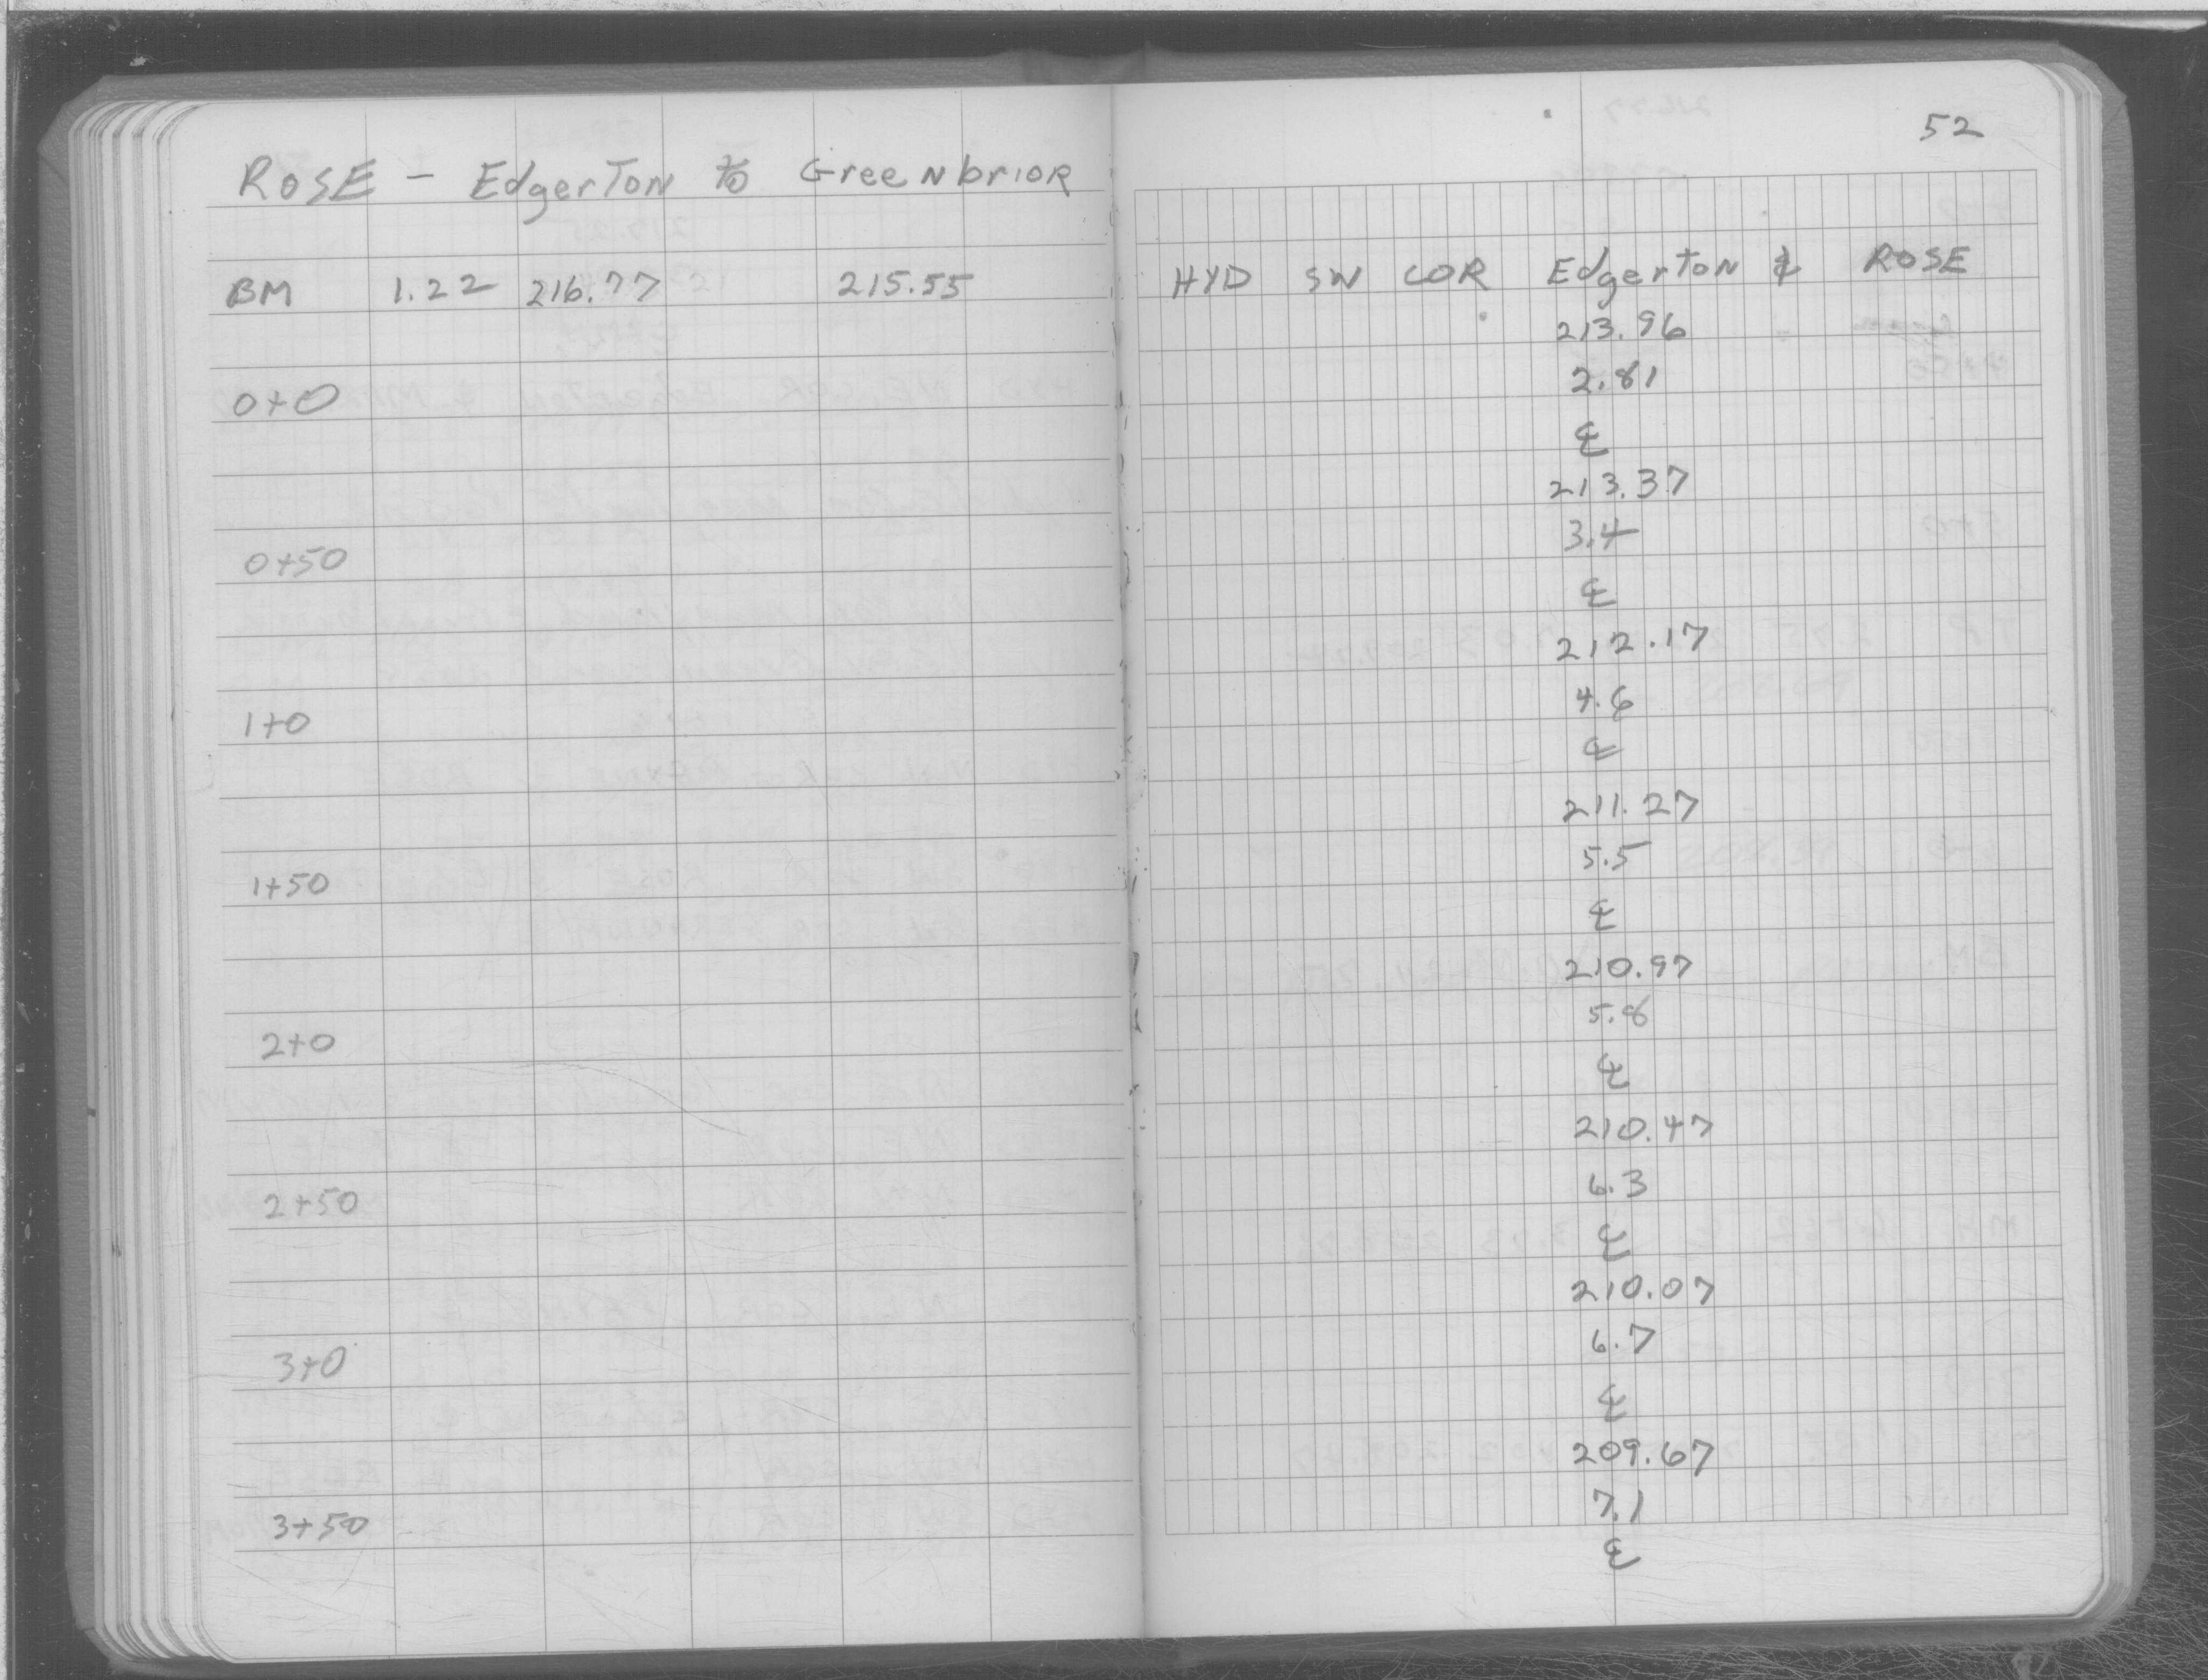 52
ROSE - Edgerton to Greenbrior
BM 1.22 216.77 215.55 HYD SW COR Edgerton & ROSE
213.96
0+0 2.81
℄
213.37
0+50 3.4
℄
212.17
1+0 4.6
℄
211.27
1+50 5.5
℄
210.97
2+0 5.8
℄
210.47
2+50 6.3
℄
210.07
3+0 6.7
℄
209.67
3+50 7.1
℄